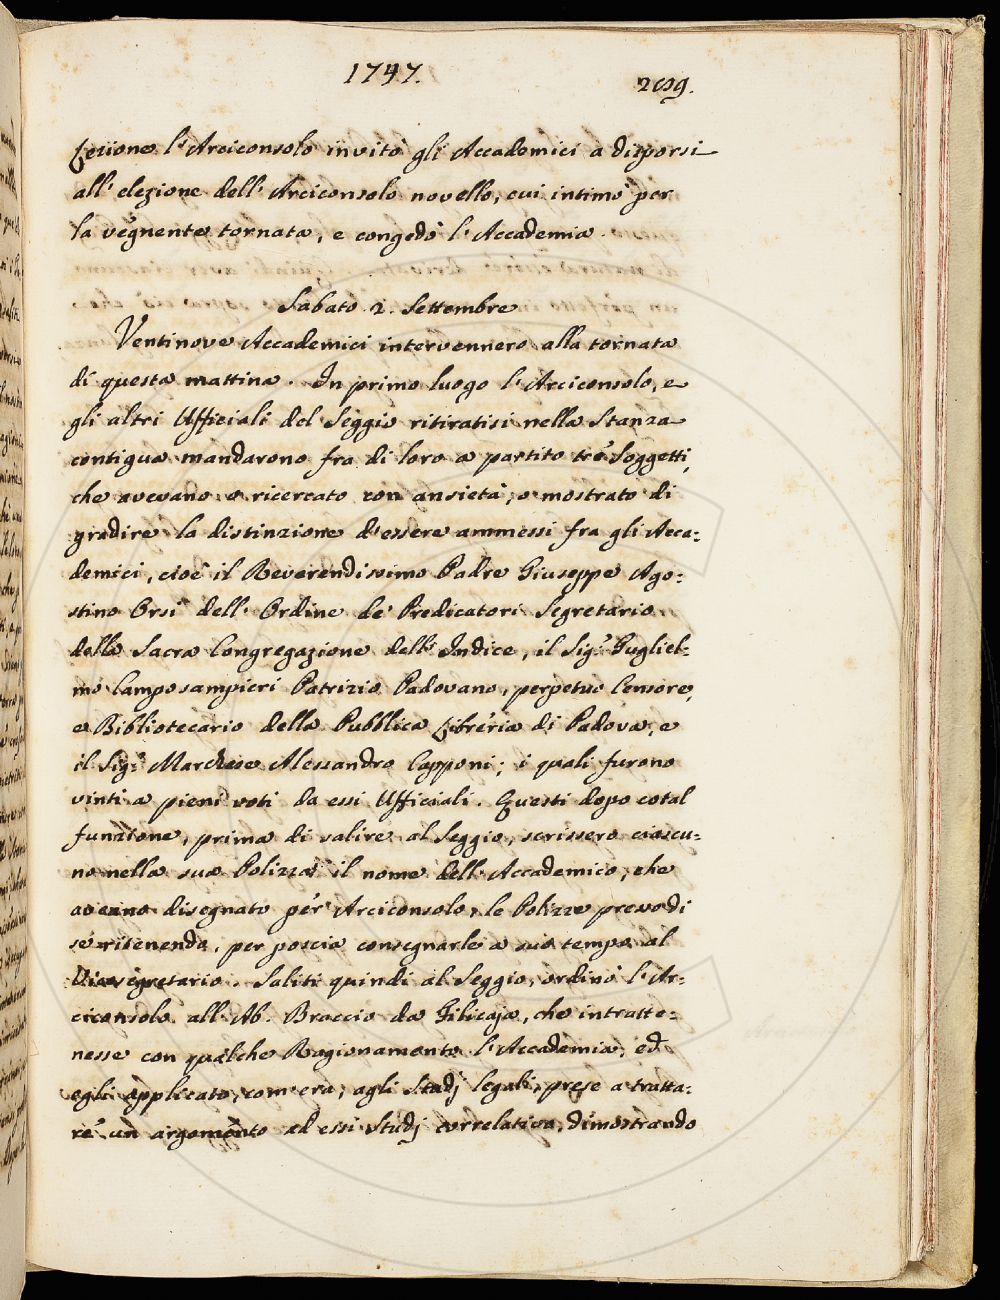 1747.
209.
Lezione l'Arciconsolo invitò gli Accademici a disporsi
all' elezione dell' Arciconsolo novello, cui intimò per
la vegnente tornata, e congedò l' Accademia.
Sabato 2. Settembre
Ventinove Accademici intervennero alla tornata
di questa mattina. In primo luogo l'Arciconsolo, e
gli altri Ufficiali del Seggio ritiratisi nella Stanza
contigua mandarono fra di loro a partito tre Soggetti,
che avevano o ricercato con ansietà, o mostrato di
gradire la distinzione d'essere ammessi fra gli Acca=
demici, cioè il Reverendissimo Padre Giuseppe Ago=
stino Orsi dell' Ordine de' Predicatori Segretario
della Sacra Congregazione dell' Indice, il Sig.r Gugliel=
mo Camposampieri Patrizio Padovano, perpetuo Censore,
e Bibliotecario della Pubblica Libreria di Padova, e
il Sig.r Marchese Alessandro Capponi; i quali furono
vinti a pieni voti da essi Ufficiali. Questi dopo cotal
funzione, prima di salire al Seggio, scrissero ciascu=
no nella sua Polizza il nome dell' Accademico, che
aveano disegnato per Arciconsolo, le Polizze presso di
se ritenendo, per poscia consegnarle a suo tempo al
Vicesegretario. Saliti quindi al Seggio, ordinò l'Ar=
ciconsolo all' Ab. Braccio da Filicaja, che intratte=
nesse con qualche Ragionamento l'Accademia; ed
egli applicato, com'era, agli Studj legali, prese a tratta=
re un argomento ad essi Studj correlativo, dimostrando